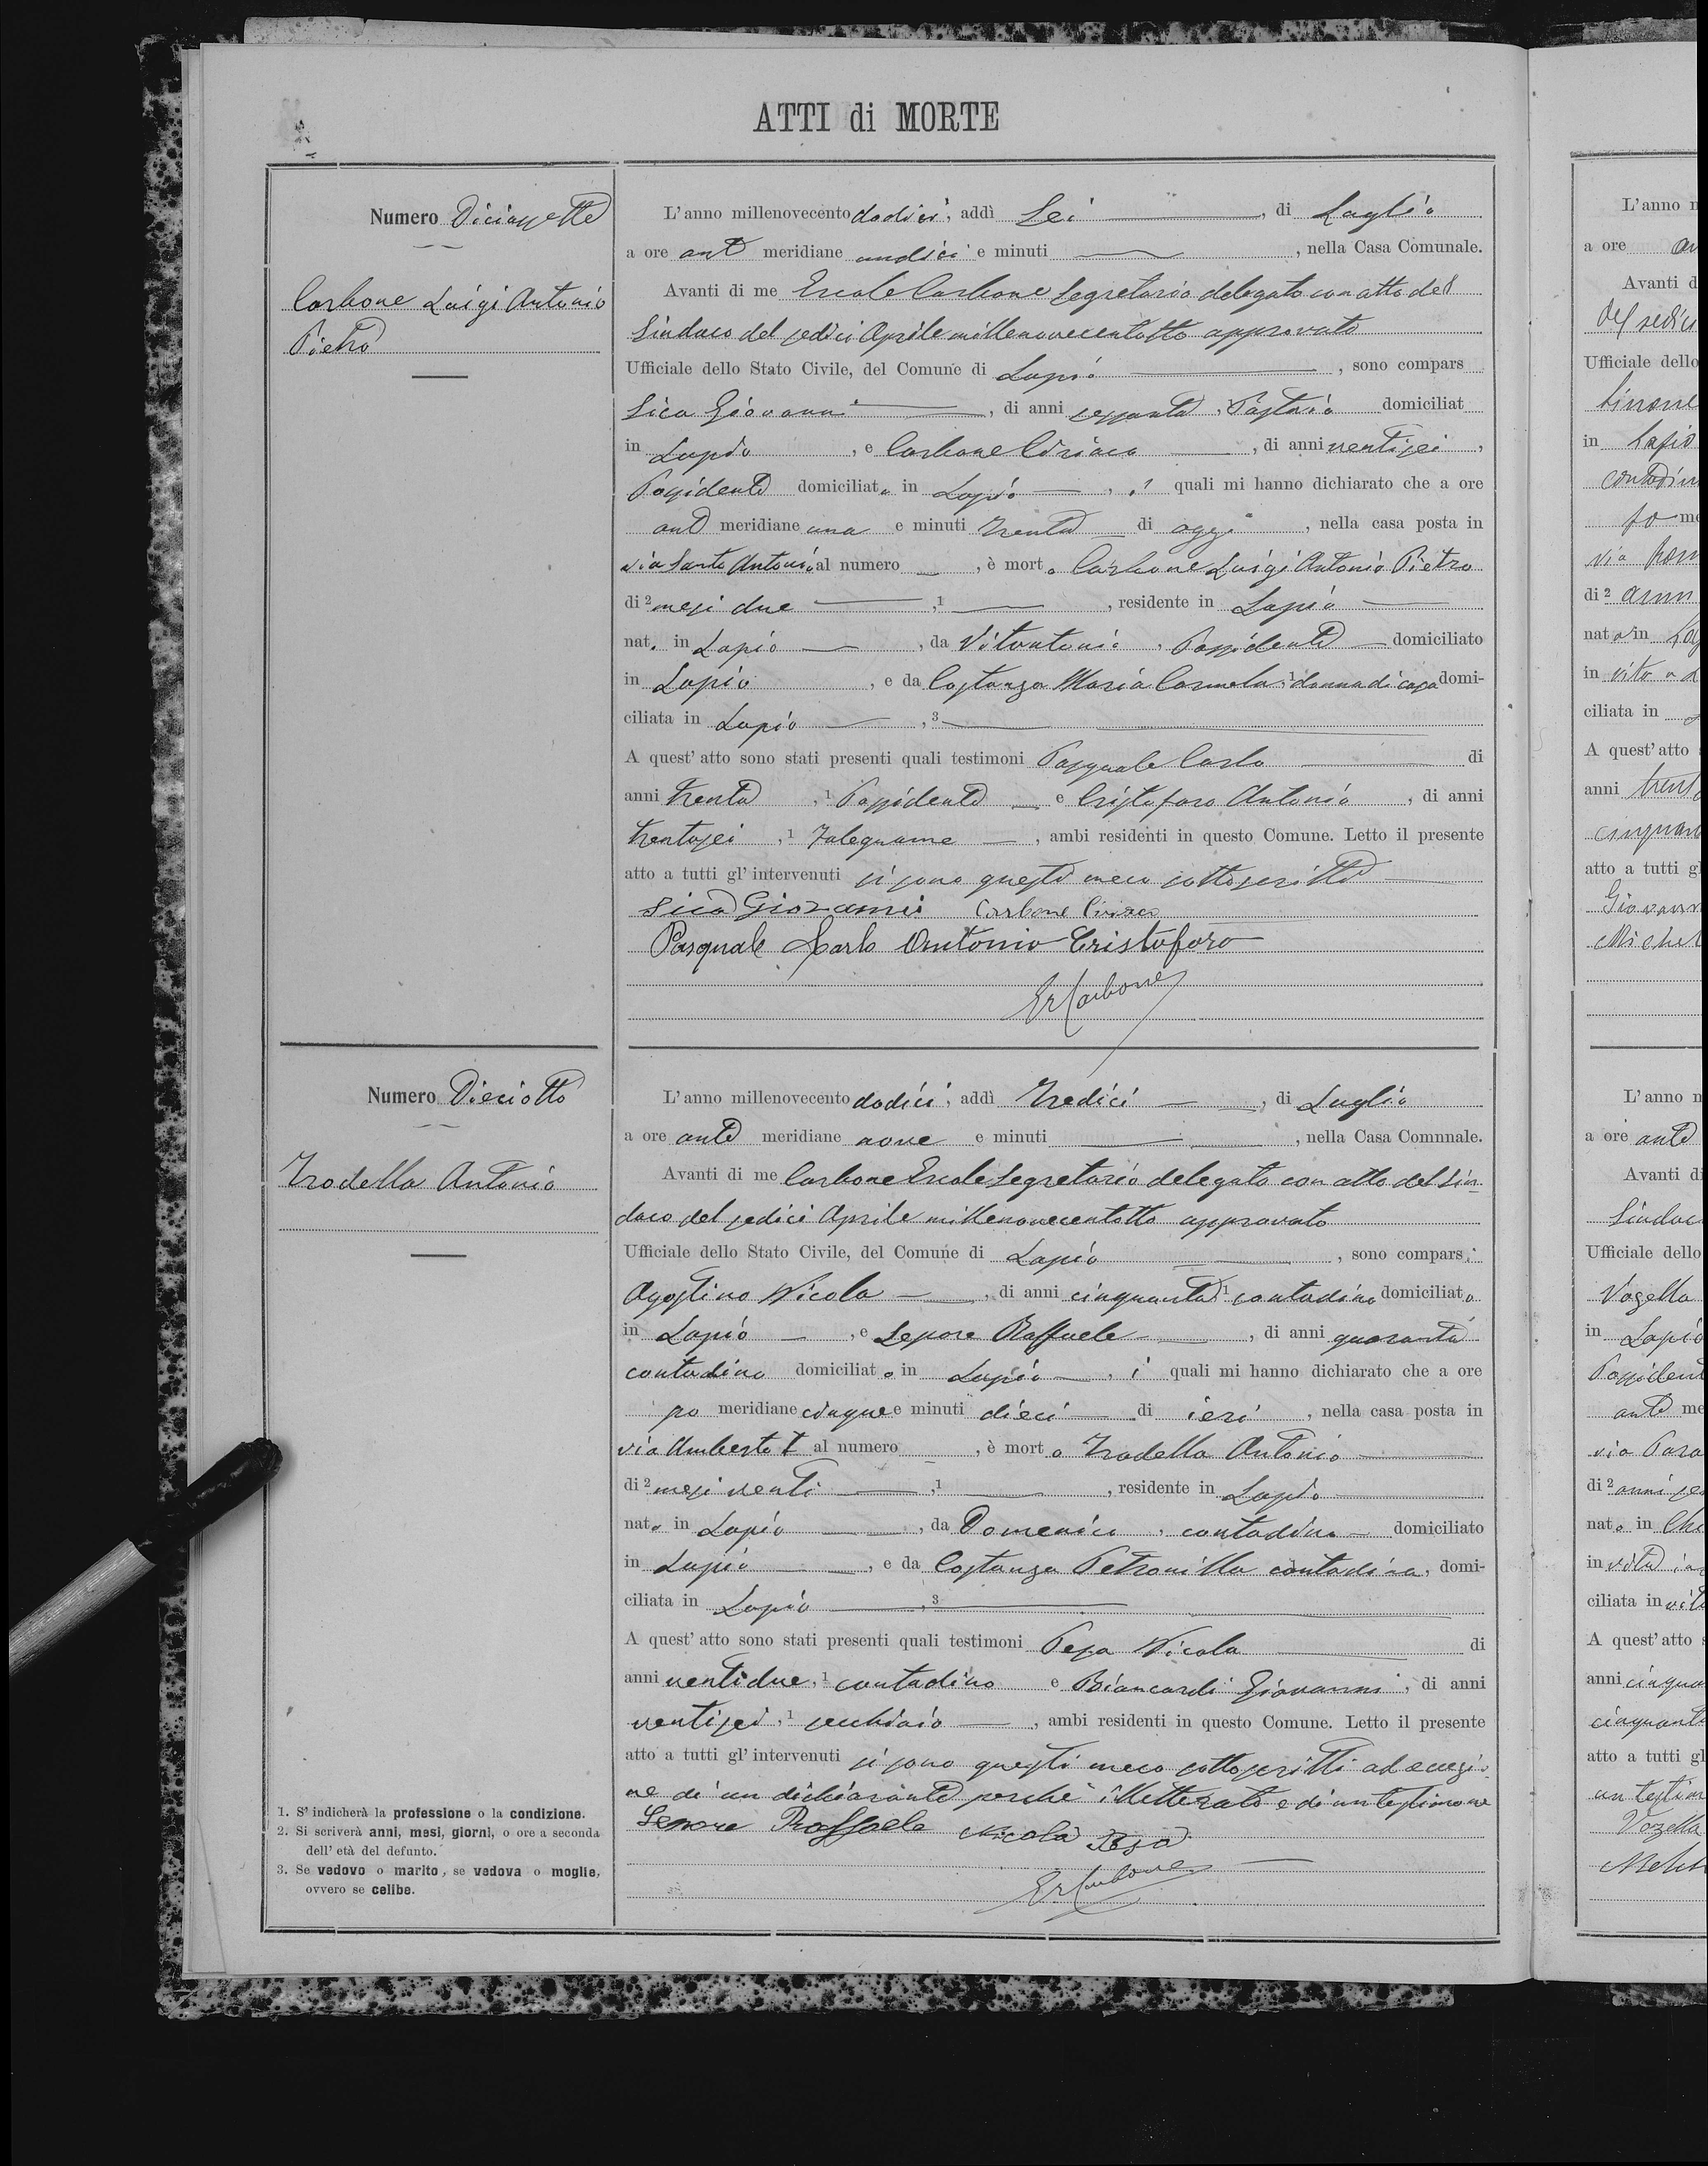 ATTI di MORTE
Numero Diciassette
Carbone Luigi Antonio
Pietro
L'anno millenovecento dodici, addì Sei, di Luglio
a ore ant meridiane undici e minuti, nella Casa Comunale.
Avanti di me Ercole Carbone Segretario delegato con atto del
Sindaco del sedici Aprile millenovecentotto approvato
Ufficiale dello Stato Civile, del Comune di Lapio, sono compars
Sica Giovanni, di anni sessanta, domiciliat
in Lapio, e Carbone Ciriaco, di anni ventisei,
Possidente domiciliato in Lapio, i quali mi hanno dichiarato che a ore
ant meridiane una e minuti trenta di oggi, nella casa posta in
via Santo Antonio al numero, è morto Carbone Luigi Antonio Pietro
di 2 mesi due, 1, residente in Lapio
nato in Lapio, da Vitantonio, Possidente domiciliato
in Lapio, e da Costanza Maria Carmela, 1 donna di casa domi-
ciliata in Lapio, 3
A quest'atto sono stati presenti quali testimoni Pasquale Carlo di
anni trenta, 1 Possidente e Cristofaro Antonio, di anni
trentasei, 1 Falegname, ambi residenti in questo Comune. Letto il presente
atto a tutti gl'intervenuti si sono questi meco sottoscritti
Sica Giovanni Carbone Ciriaco
Pasquale Carlo Antonio Cristoforo
Er Carbone
Numero Dieciotto
Trodella Antonio
L'anno millenovecento dodici, addì Tredici, di Luglio
a ore ant meridiane nove e minuti, nella Casa Comnnale.
Avanti di me Carbone Ercole Segretario delegato con atto del Sin-
daco del sedici Aprile millenovecentotto approvato
Ufficiale dello Stato Civile, del Comune di Lapio, sono comparsi
Agostino Nicola, di anni cinquanta 1 contadino domiciliato
in Lapio, e Lepore Raffaele, di anni quaranta
contadino domiciliato in Lapio, i quali mi hanno dichiarato che a ore
po meridiane cinque e minuti dieci di ieri, nella casa posta in
via Umberto I al numero, è morto Trodella Antonio
di 2 mesi venti, 1, residente in Lapio
nato in Lapio, da Domenico, contadino domiciliato
in Lapio, e da Costanza Petronilla contadina, domi-
ciliata in Lapio, 3
A quest'atto sono stati presenti quali testimoni Pesa Nicola di
anni ventidue, 1 contadino e Biancardi Giovanni, di anni
ventisei, 1 secchiaio, ambi residenti in questo Comune. Letto il presente
atto a tutti gl'intervenuti si sono questi meco sottoscritti ad eccezio-
ne di un dichiarante perchè illetterato e di un testimone
Lepore Raffaele Nicola Pesa
Er Carbone
1. S'indicherà la professione o la condizione.
2. Si scriverà anni, mesi, giorni, o ore a seconda
dell'età del defunto.
3. Se vedovo o marito, se vedova o moglie,
ovvero se celibe.
L'anno
a ore
Avanti d
Del sedici
Ufficiale dello
in Lapio
di 2 anni
nato in
in vita
ciliata in
A quest'atto
anni
atto a tutti g
L'anno
a ore ant
Avanti di
Sindac
Ufficiale dello
Vozella
in Lapio
Possident
ant me
di 2 anni
nato in
in vita
ciliata in
A quest'atto
anni
atto a tutti gl
un testim
Vozella